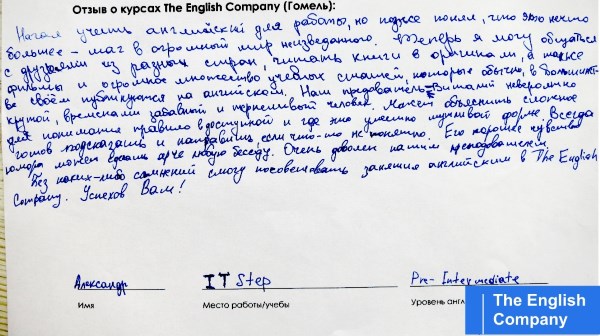 Отзыв о курсах The English Company (Гомель):
Начал учить английский для работы, но позже понял, что это нечто
большее – шаг в огромный мир неизведанного. Теперь я могу общаться
с друзьями из разных стран, читать книги в оригинале, а также
фильмы и огромное множество учебных статей, которые обычно, в большинст-
ве своём публикуются на английском. Наш преподаватель – Виталий невероятно
крутой, временами забавный и терпеливый человек. Может объяснить сложное
для понимания правило в доступной и где это уместно шутливой форме. Всегда
готов подсказать и направить если что-то не понятно. Его хорошее чувство
юмора может сделать ярче любую беседу. Очень доволен нашим преподавателем.
Без каких-либо сомнений смогу посоветовать занятия английским в The English
Company. Успехов Вам!
Александр IT Step Pre-Intermediate
Имя Место работы/учебы Уровень англ
The English
Company